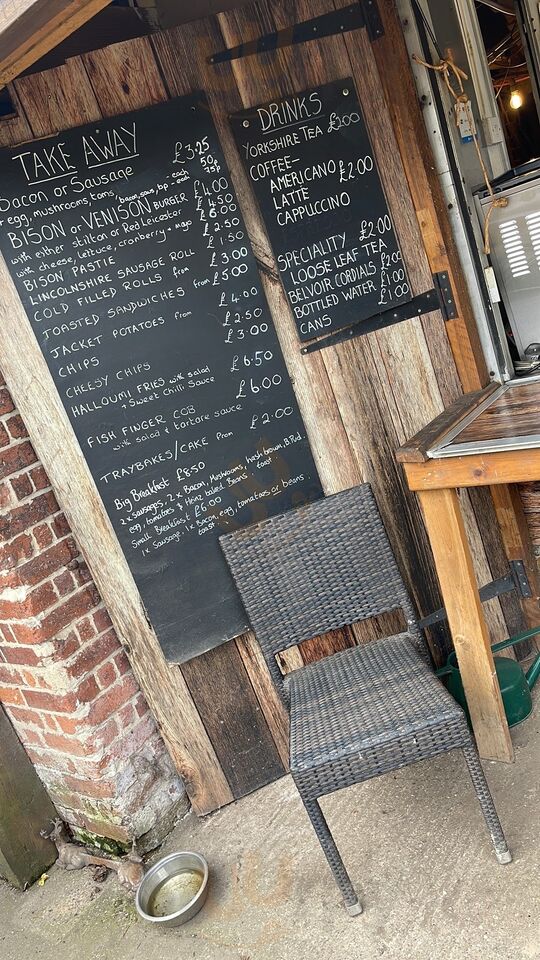 TAKE AWAY
Bacon or Sausage £3.25
+ egg, mushrooms, toms, bacon, saus, bp - each 50p
- each 75p
BISON or VENISON BURGER
with either stilton or Red Leicester
with cheese, lettuce, cranberry + mayo
BISON PASTIE
LINCOLNSHIRE SAUSAGE ROLL
COLD FILLED ROLLS from £3.00
TOASTED SANDWICHES from £5.00
JACKET POTATOES from £4.00
CHIPS £2.50
CHEESY CHIPS £3.00
HALLOUMI FRIES with salad £6.50
+ Sweet Chilli Sauce
FISH FINGER COB £6.00
with salad & tartare sauce
TRAYBAKES/CAKE from £2.00
Big Breakfast £8.50
2 x sausages, 2 x Bacon, Mushrooms, hash brown, B.Pud,
egg, tomatoes & Heinz baked Beans toast
Small Breakfast £6.00
1x Sausage, 1x Bacon, egg, tomatoes or beans
toast
DRINKS
YORKSHIRE TEA £2.00
COFFEE-
AMERICANO £2.00
LATTE
CAPPUCCINO
SPECIALITY £2.00
LOOSE LEAF TEA
BELVOIR CORDIALS £2.00
BOTTLED WATER £1.00
CANS £1.00